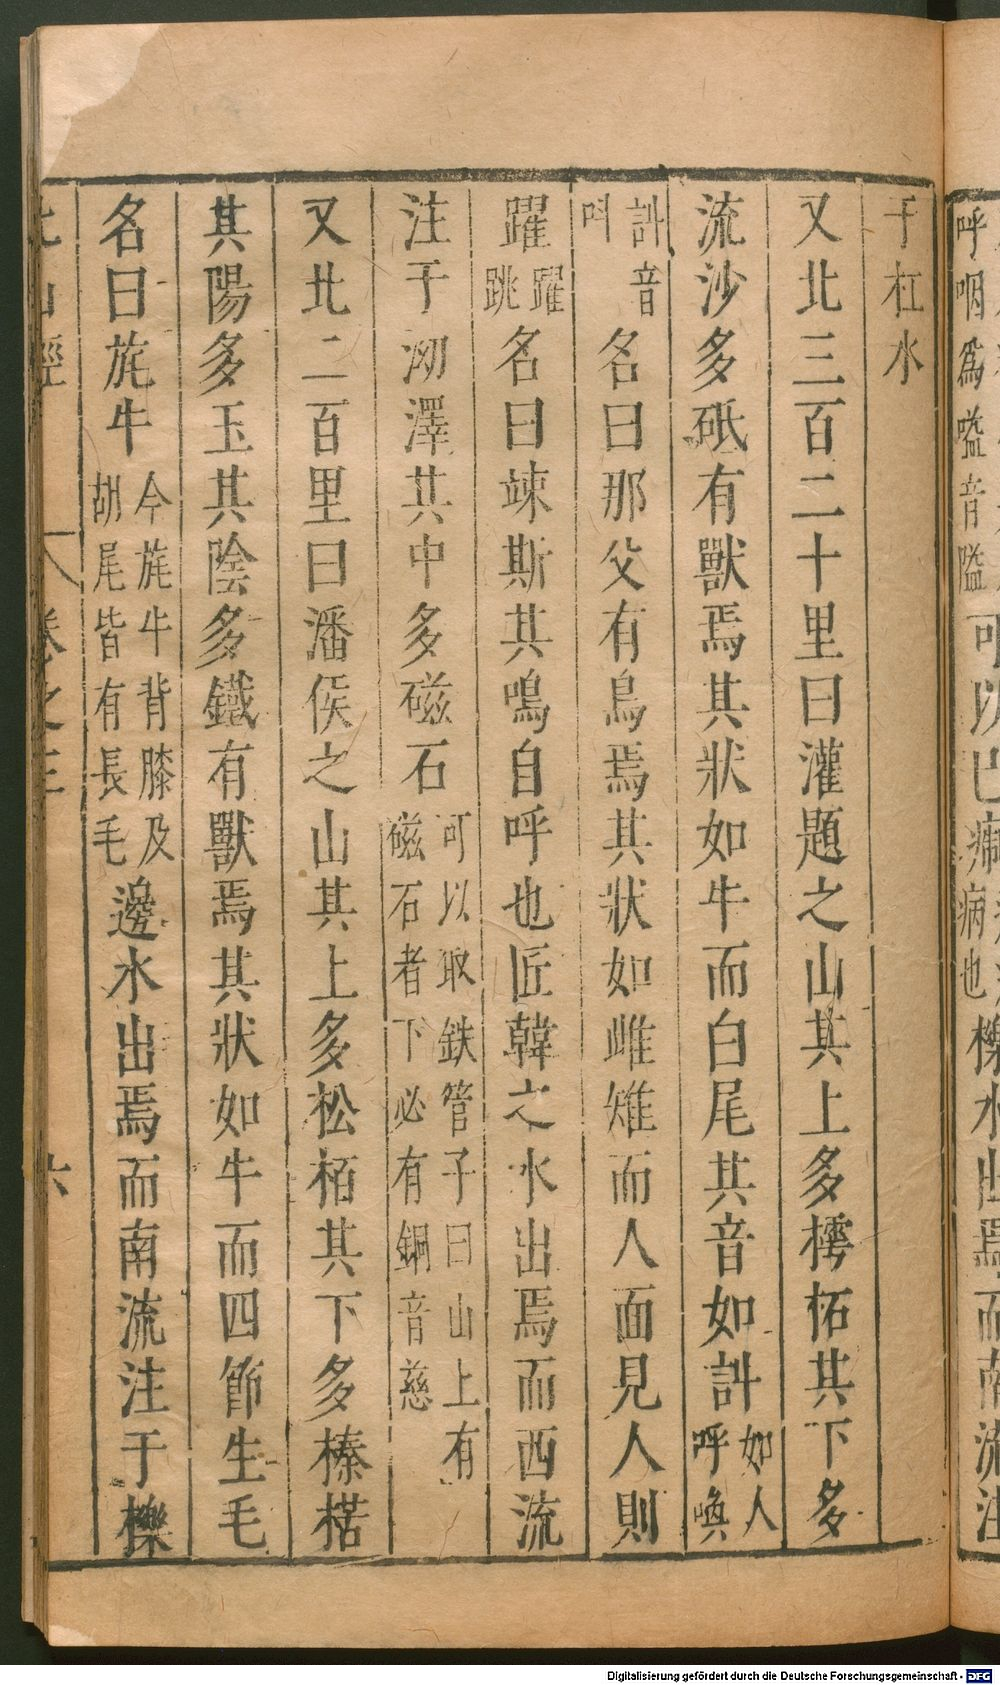 于杠水
又北三百二十里曰灌題之山其上多樗柘其下多
流沙多砥有獸焉其狀如牛而白尾其音如訆如人呼喚
訆音叫名曰那父有鳥焉其狀如雌雉而人面見人則
躍躍跳名曰竦斯其鳴自呼也匠韓之水出焉而西流
注于泑澤其中多磁石可以取鉄管子曰山上有磁石者下必有銅音慈
又北二百里曰潘侯之山其上多松栢其下多榛楛
其陽多玉其陰多鐵有獸焉其狀如牛而四節生毛
名曰旄牛今旄牛背膝及胡尾皆有長毛邊水出焉而南流注于櫟
北山經 卷之三 六
Digitalisierung gefördert durch die Deutsche Forschungsgemeinschaft - DFG